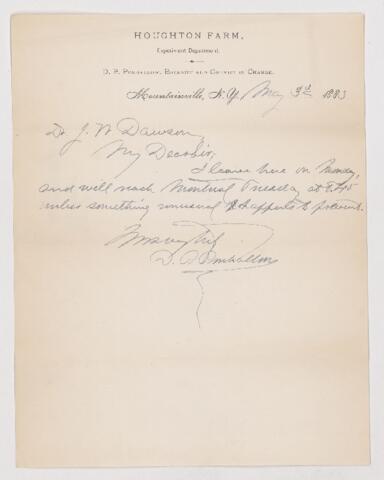 HOUGHTON FARM,
Experiment Department.
D. P. PENHALLOW, BOTANIST AND CHEMIST IN CHARGE.
Mountainville, N.Y. May 3d 1883
Dr J. W Dawson,
My Dear Sir,
I leave here on Monday,
and will reach Montreal Tuesday at 8.45
unless something unusual happens to prevent.
Yours very truly
D. P. Penhallow